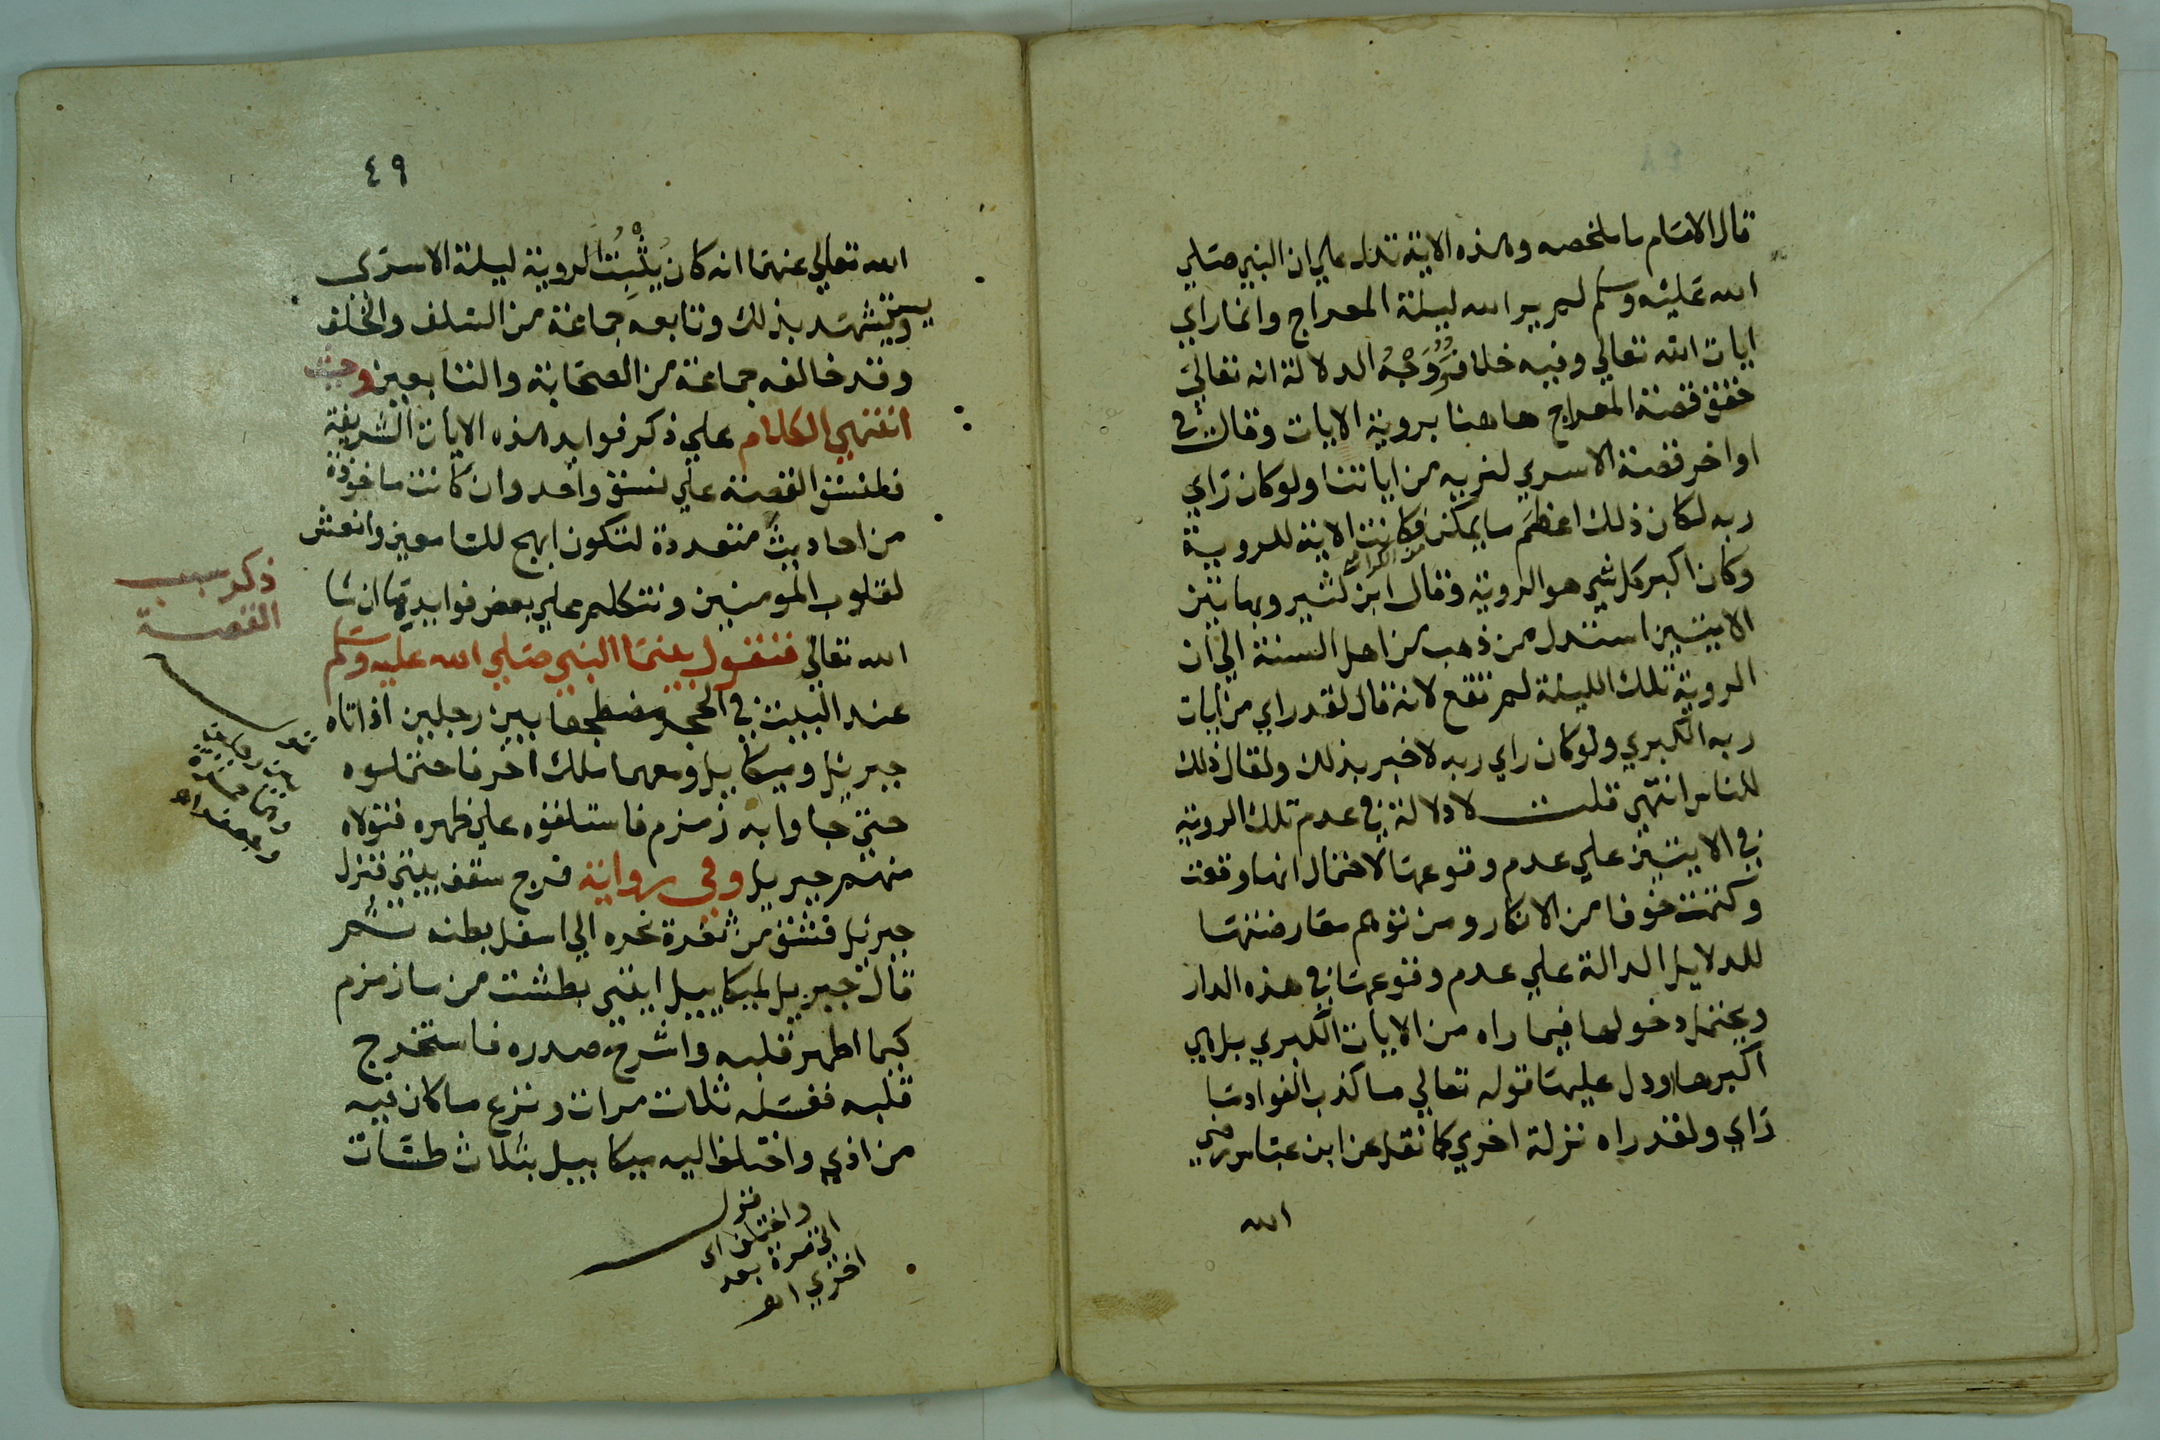 قال الامام ما ملخصه وهذه الاية تدل علي ان النبي صلي
الله عليه وسلم لم ير الله ليلة المعراج وانما راي
ايات الله تعالي وفيه خلاف ووجه الدلالة انه تعالي
ختم قصة المعراج هاهنا بروية الايات وقال في
اواخر قصة الاسري لنريه من اياتنا ولو كان راي
ربه لكان ذلك اعظم ما يمكن فكانت الاية للروية
وكان اكبر كل شي هو الروية وقال ابن كثير وبهاتين
الايتين استدل من ذهب من اهل السنة الي ان
الروية تلك الليلة لم تقع لانه قال لقد راي من ايات
ربه الكبري ولو كان راي ربه لاخبر بذلك ولقال ذلك
للناس انتهي قلت لا دلالة في عدم تلك الروية
في الايتين علي عدم وقوعها لاحتمال انها وقعت
وكتمت خوفا من الانكار ومن توهم معارضتها
للدلايل الدالة علي عدم وقوعها في هذه الدار
ويحتمل دخولها فيما راه من الايات الكبري بل هي
اكبرها ودل عليها قوله تعالي ما كذب الفواد ما
راي ولقد راه نزلة اخري كما نقل عن ابن عباس رضي
الله
٤٩
الله تعالي عنهما انه كان يثبت الروية ليلة الاسري
ويستشهد بذلك وتابعه جماعة من السلف والخلف
وقد خالفه جماعة من الصحابة والتابعين وحيث
انتهي الكلام علي ذكر فوايد هذه الايات الشريفة
فلنسق القصة علي نسق واحد وان كانت ماخوذة
من احاديث متعددة لتكون ابهج للسامعين وانعش
لقلوب المومنين ونتكلم علي بعض فوايدها ان شا
الله تعالي فنقول بينما النبي صلي الله عليه وسلم
عند البيت في الحجر مضطجعا بين رجلين اذ اتاه
جبريل وميكاييل ومعهما ملك اخر فاحتملوه
حتي جاوا به زمزم فاستلقوه علي ظهره فتولاه
منهم جبريل وفي رواية فرج سقف بيتي فنزل
جبريل فشق من ثغرة نحره الي اسفل بطنه ثم
قال جبريل لميكاييل ايتني بطشت من ما زمزم
كيما اطهر قلبه واشرح صدره فاستخرج
قلبه فغسله ثلاث مرات ونزع ما كان فيه
من اذي واختلف اليه ميكاييل بثلاث طشات
ذكر سبب
القصة
قوله
واختلف اي
اتي مرة بعد
اخري اهـ